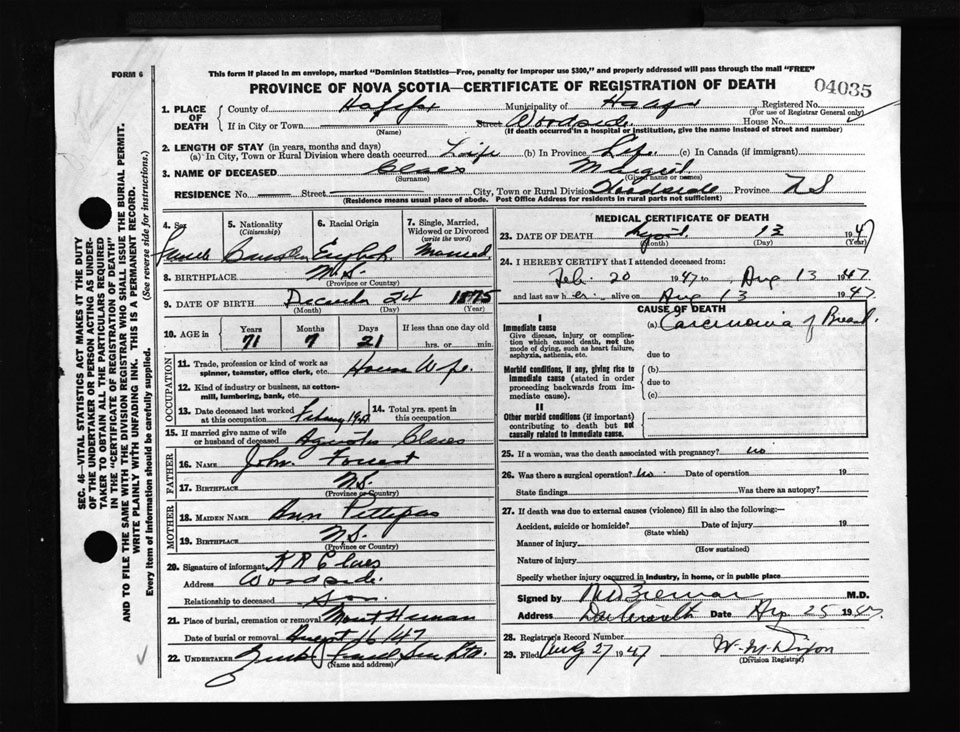 FORM 6
This form if placed in an envelope, marked "Dominion Statistics—Free, penalty for improper use $300," and properly addressed will pass through the mail "FREE"
PROVINCE OF NOVA SCOTIA—CERTIFICATE OF REGISTRATION OF DEATH
04035
1. PLACE OF DEATH
County of Halifax Municipality of Halifax Registered No.
(For use of Registrar General only)
If in City or Town Street Woodside House No.
(Name) (If death occurred in a hospital or institution, give the name instead of street and number)
2. LENGTH OF STAY (in years, months and days)
(a) In City, Town or Rural Division where death occurred Life (b) In Province Life (c) In Canada (if immigrant)
3. NAME OF DECEASED Claes Margret
(Surname) (Given name or names)
RESIDENCE No. Street City, Town or Rural Division Woodside Province N S
(Residence means usual place of abode. Post Office Address for residents in rural parts not sufficient)
4. Sex 5. Nationality (Citizenship) 6. Racial Origin 7. Single, Married, Widowed or Divorced (write the word)
Female Canadian English Married
8. BIRTHPLACE N.S.
(Province or Country)
9. DATE OF BIRTH December 24 1875
(Month) (Day) (Year)
10. AGE in Years Months Days If less than one day old
71 7 21 hrs. or min.
OCCUPATION
11. Trade, profession or kind of work as spinner, teamster, office clerk, etc. House Wife
12. Kind of industry or business, as cotton-mill, lumbering, bank, etc.
13. Date deceased last worked at this occupation 14. Total yrs. spent in this occupation.
15. If married give name of wife or husband of deceased Claes
FATHER
16. NAME John Forrest
17. BIRTHPLACE N.S.
(Province or Country)
MOTHER
18. MAIDEN NAME Ann Pettipas
19. BIRTHPLACE N.S.
(Province or Country)
20. Signature of informant Claes
Address Woodside.
Relationship to deceased Son.
21. Place of burial, cremation or removal Mount Herman
Date of burial or removal August 16/47
22. UNDERTAKER
(Name and address)
MEDICAL CERTIFICATE OF DEATH
23. DATE OF DEATH 13 1947
(Month) (Day) (Year)
24. I HEREBY CERTIFY that I attended deceased from:
Feb. 20 1947 to Aug 13 1947
and last saw h er alive on Aug 13 1947
CAUSE OF DEATH
I
Immediate cause
Give disease, injury or complication which caused death, not the mode of dying, such as heart failure, asphyxia, asthenia, etc.
(a) Carcinoma of Breast.
due to
Morbid conditions, if any, giving rise to immediate cause (stated in order proceeding backwards from immediate cause).
(b)
due to
(c)
II
Other morbid conditions (if important) contributing to death but not causally related to immediate cause.
25. If a woman, was the death associated with pregnancy? no
26. Was there a surgical operation? no. Date of operation 19
State findings Was there an autopsy?
27. If death was due to external causes (violence) fill in also the following:—
Accident, suicide or homicide? Date of injury 19
(State which)
Manner of injury
(How sustained)
Nature of injury
Specify whether injury occurred in industry, in home, or in public place
Signed by M.D.
Address Dartmouth Date Aug. 25 1947
28. Registrar's Record Number
29. Filed Aug 27 1947 W. M. Dixon
(Division Registrar)
SEC. 46—VITAL STATISTICS ACT MAKES IT THE DUTY
OF THE UNDERTAKER OR PERSON ACTING AS UNDER-
TAKER TO OBTAIN ALL THE PARTICULARS REQUIRED
IN THE "CERTIFICATE OF REGISTRATION OF DEATH"
AND TO FILE THE SAME WITH THE DIVISION REGISTRAR WHO SHALL ISSUE THE BURIAL PERMIT.
WRITE PLAINLY WITH UNFADING INK. THIS IS A PERMANENT RECORD.
Every item of information should be carefully supplied. (See reverse side for instructions.)